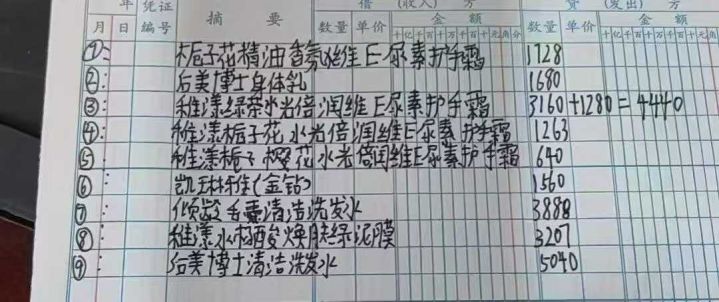 年 凭证 摘 要 借 (收入) 方 贷 (发出) 方
月 日 编号 数量 单价 金 额 数量 单价 金 额
十亿千百十万千百十元角分 十亿千百十万千百十元角
①: 栀子花精油香氛 维E尿素护手霜 1728
②: 后美博士身体乳 1680
③: 稚漾绿茶水光倍润维E尿素护手霜 3160+1280=4440
④: 稚漾栀子花水光倍润维E尿素护手霜 1263
⑤ 稚漾栀子樱花水光倍润维E尿素护手霜 640
⑥: 凯琳雅(金钻) 1560
⑦: 倾龄 清洁洗发水 3888
⑧: 稚漾水杨酸焕肤绿泥膜 3207
⑨: 后美博士清洁洗发水 5040